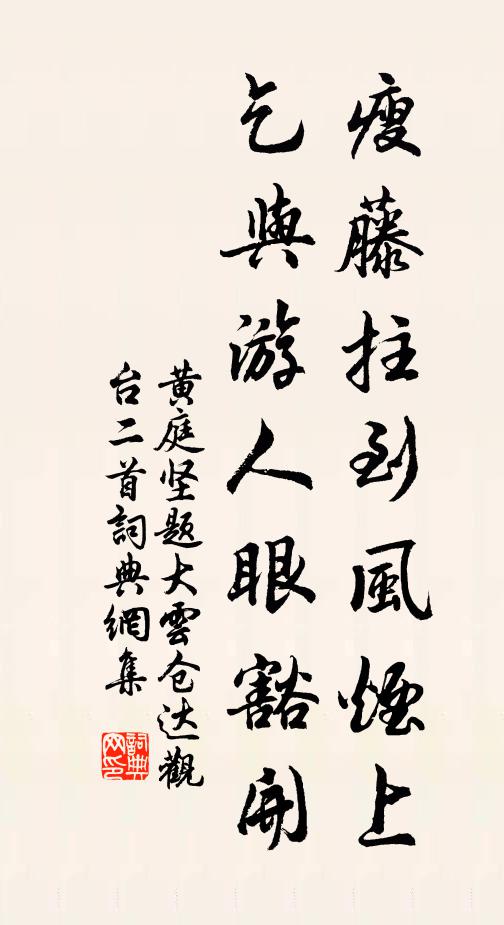 瘦藤拄到風煙上
乞與游人眼豁開
黄庭坚题大雲仓达觀
台二首詞典網集
詞典網印